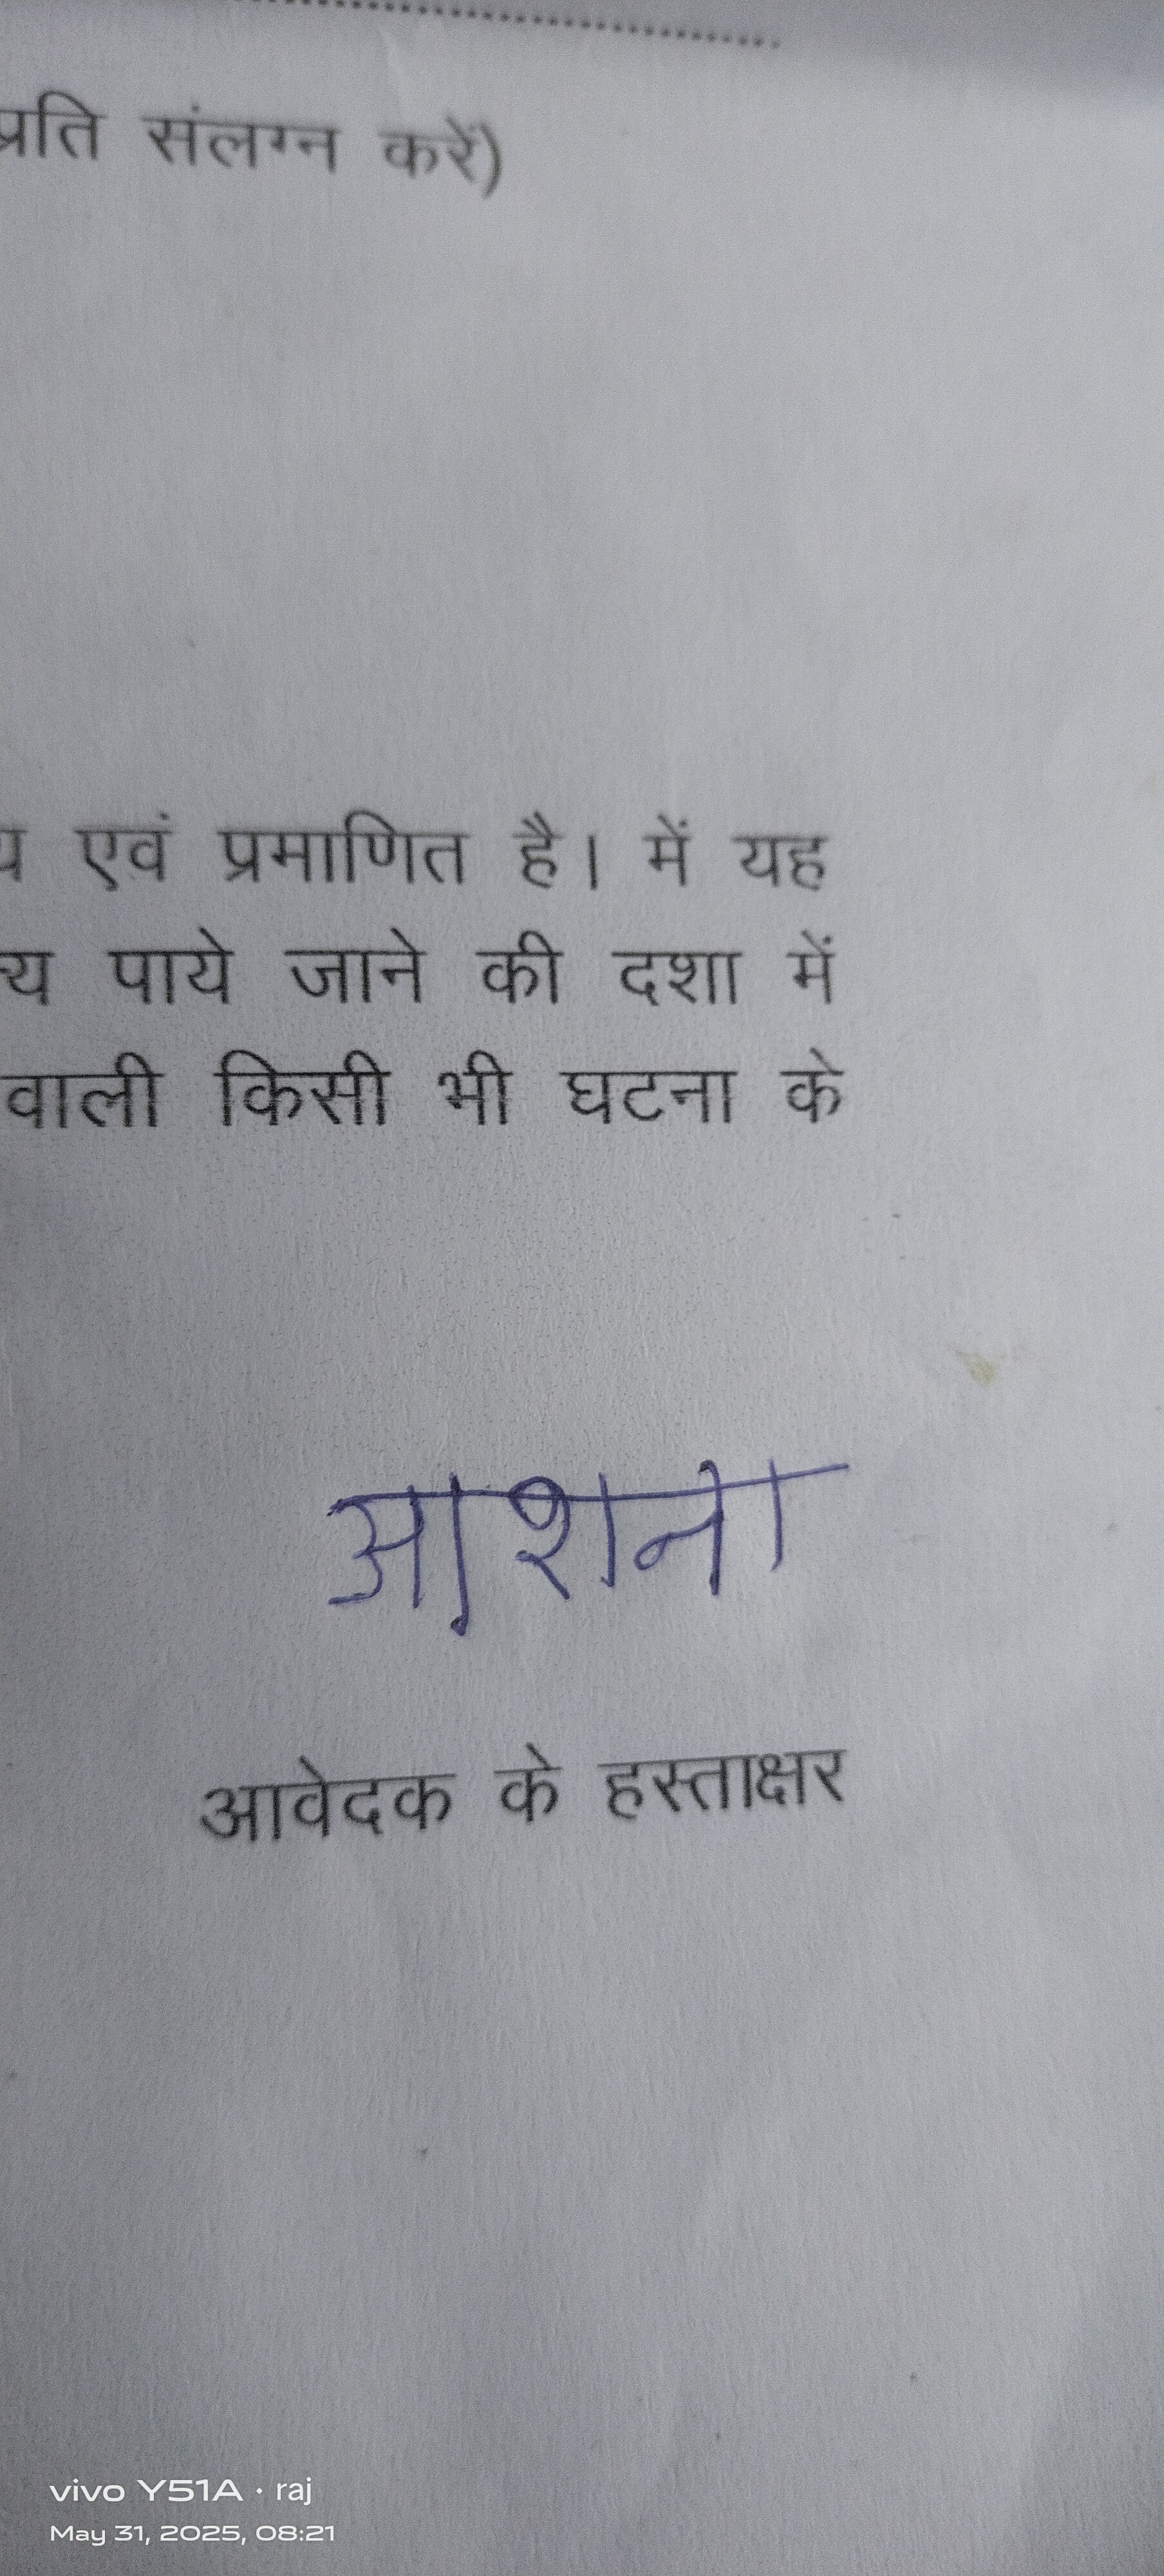 प्रति संलग्न करें)
एवं प्रमाणित है। में यह
पाये जाने की दशा में
वाली किसी भी घटना के
आशना
आवेदक के हस्ताक्षर
vivo Y51A · raj
May 31, 2025, 08:21